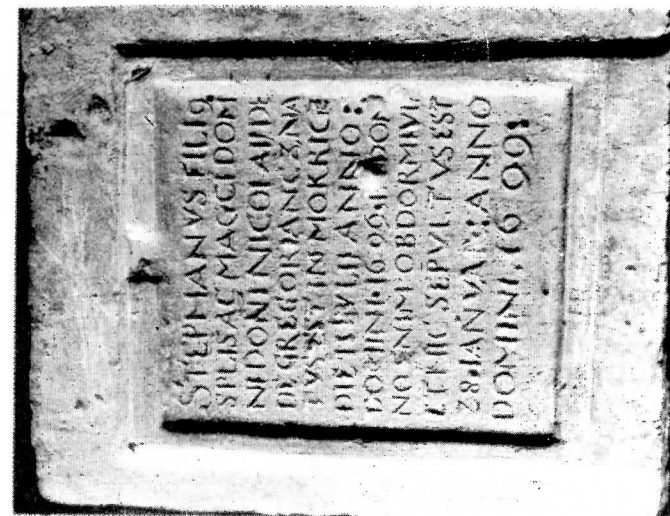 STEPHANVS FILI9
SPLIS AC MAGCI DOM
NI DONI NICOLAI DE
GREGORIANCZ NA
TVS EST IN MOKRICE
DIE IVLII ANNO:
DOMINI 1699 DOM
NO ENIM OBDORMIVI
ET HIC SEPVLTVS EST
28 IANVAR: ANNO
DOMINI, 16 99: